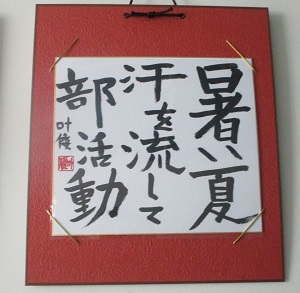 暑い夏
汗を流して
部活動